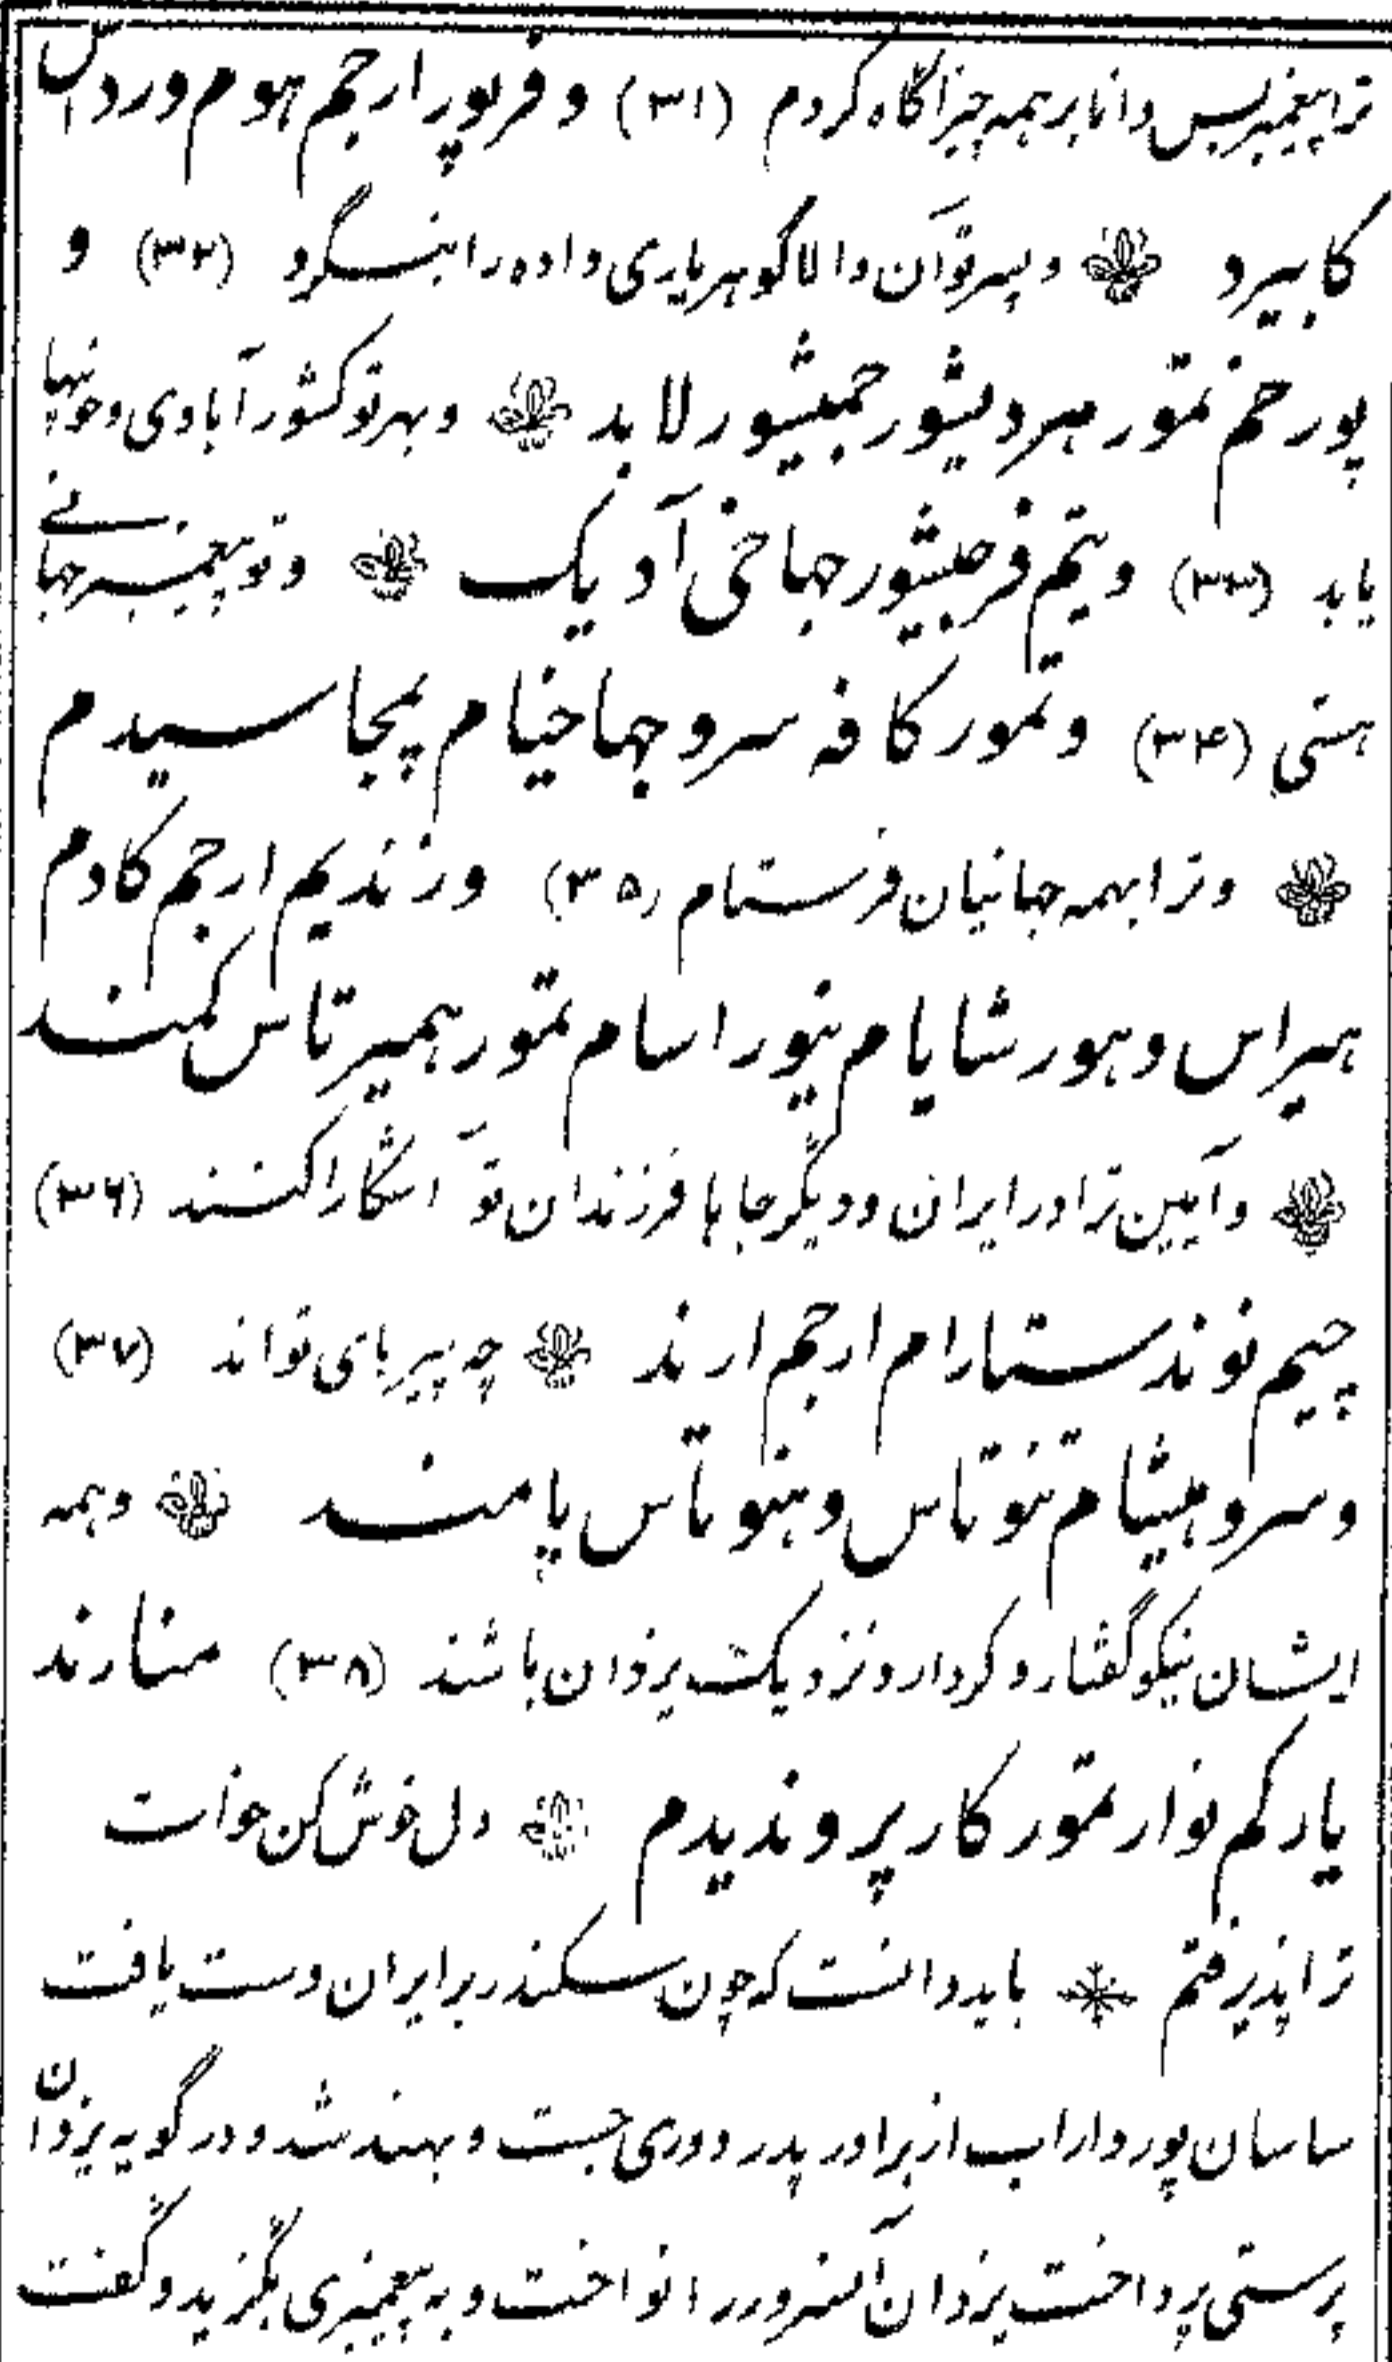 ترا پیغمبر پس و دانا بر همه چیز آگاه کردم (۳۱) و فرپور ارجم هوم ورداس
کابپرو و پسر تو آن والا گوهر یاری داده را بنگرد (۳۲) و
پور خم تمور هرد یشور جمیشور لابد و بهر تو کشور آبادی و خوبیها
یابد (۳۳) و یتم فرجیشور جهاخی آویک و تو پیغمبر جهانی
هستی (۳۴) و تمور کافه سرو جهاخیام پیجاسیدم
و ترا بهمه جهانیان فرستادم (۳۵) و رندیم ارجم کادم
هیراس و هور شایام نیور اسام تمور همیرتاس کمند
و آیین ترا در ایران و دیگر جاها فرزندان تو آشکارا کنند (۳۶)
چیم نوند ستارام ارجم ارند چه پیرهای تو اند (۳۷)
و سرو هیشام نوتاس و هنوتاس پامند و همه
ایشان نیکو گفتار و کردار و نزدیک یزدان باشند (۳۸) منارند
یارکم نوار تمور کار پروندیدم دل خوش کن خواست
ترا پذیرفتم باید دانست که چون سکندر بر ایران دست یافت
ساسان پور داراب از برادر پدر دوری جست و بهند شد و در گویه یزدان
پرستی پرداخت یزدان آن سرور را نواخت و به پیغمبری بگزید و گفت